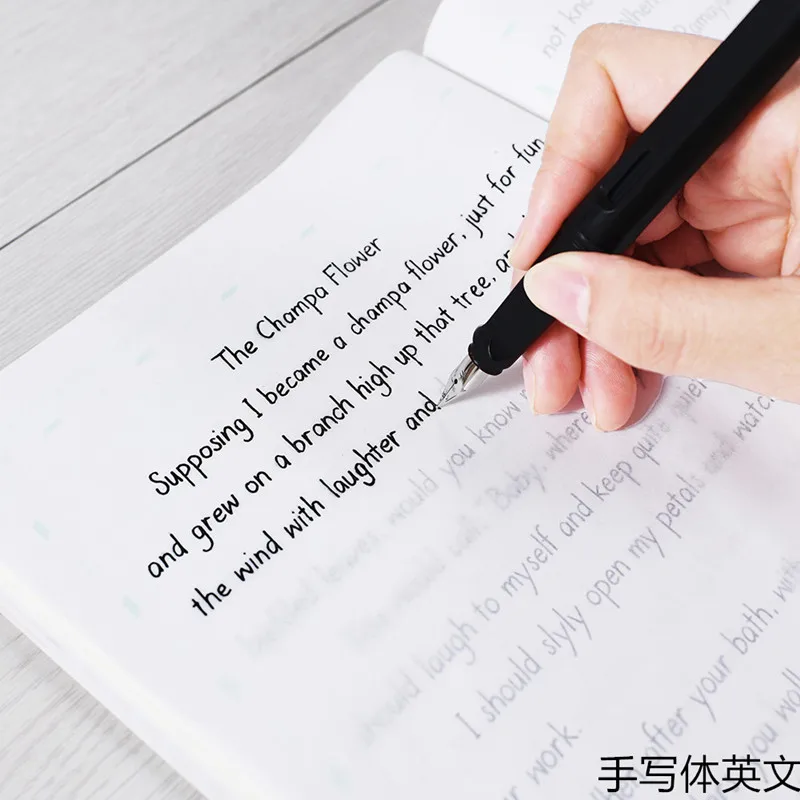 not know
The Champa Flower
Supposing I became a champa flower, just for fun
and grew on a branch high up that tree, and
the wind with laughter and
would you know
"Baby, where
should laugh to myself and keep quite quiet
I should slyly open my petals and watch
after your bath, with
work.
you
手写体英文